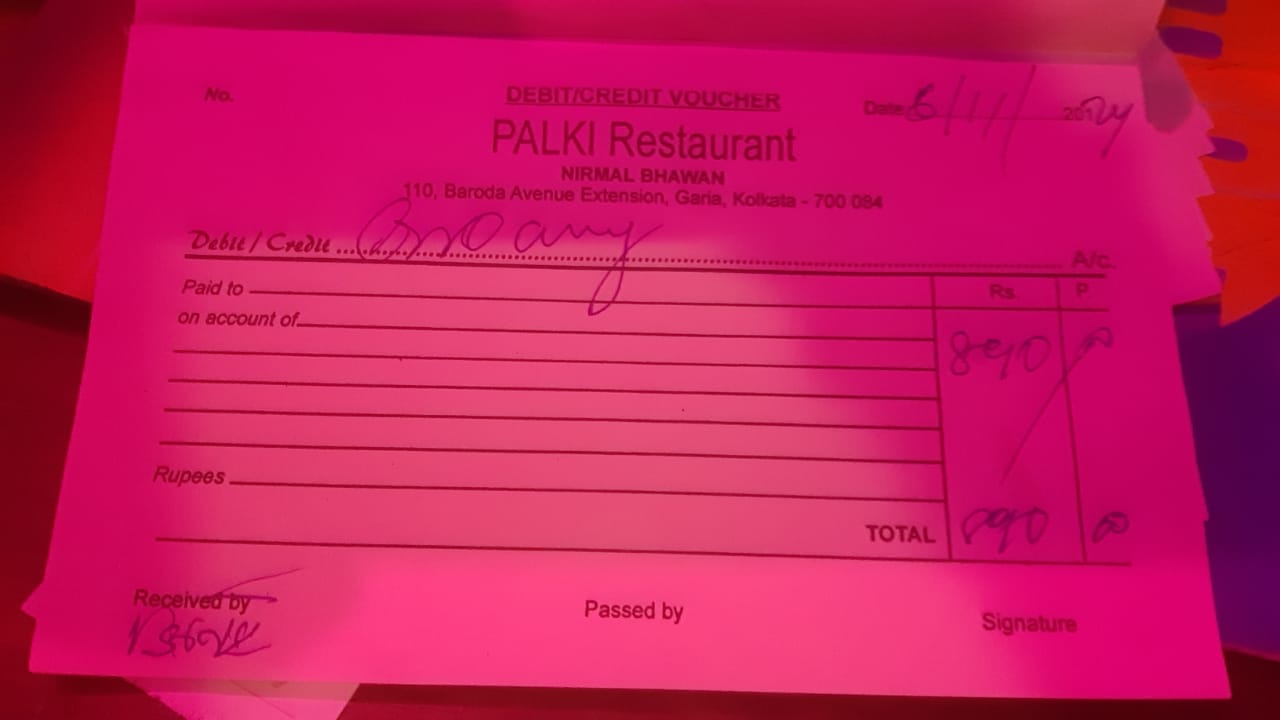 No.
DEBIT/CREDIT VOUCHER
Date 6/11/ 20124
PALKI Restaurant
NIRMAL BHAWAN
110, Baroda Avenue Extension, Garia, Kolkata - 700 084
Debit / Credit A/c.
Paid to Rs. P.
on account of
890/00
Rupees
TOTAL 890 00
Received by Passed by Signature